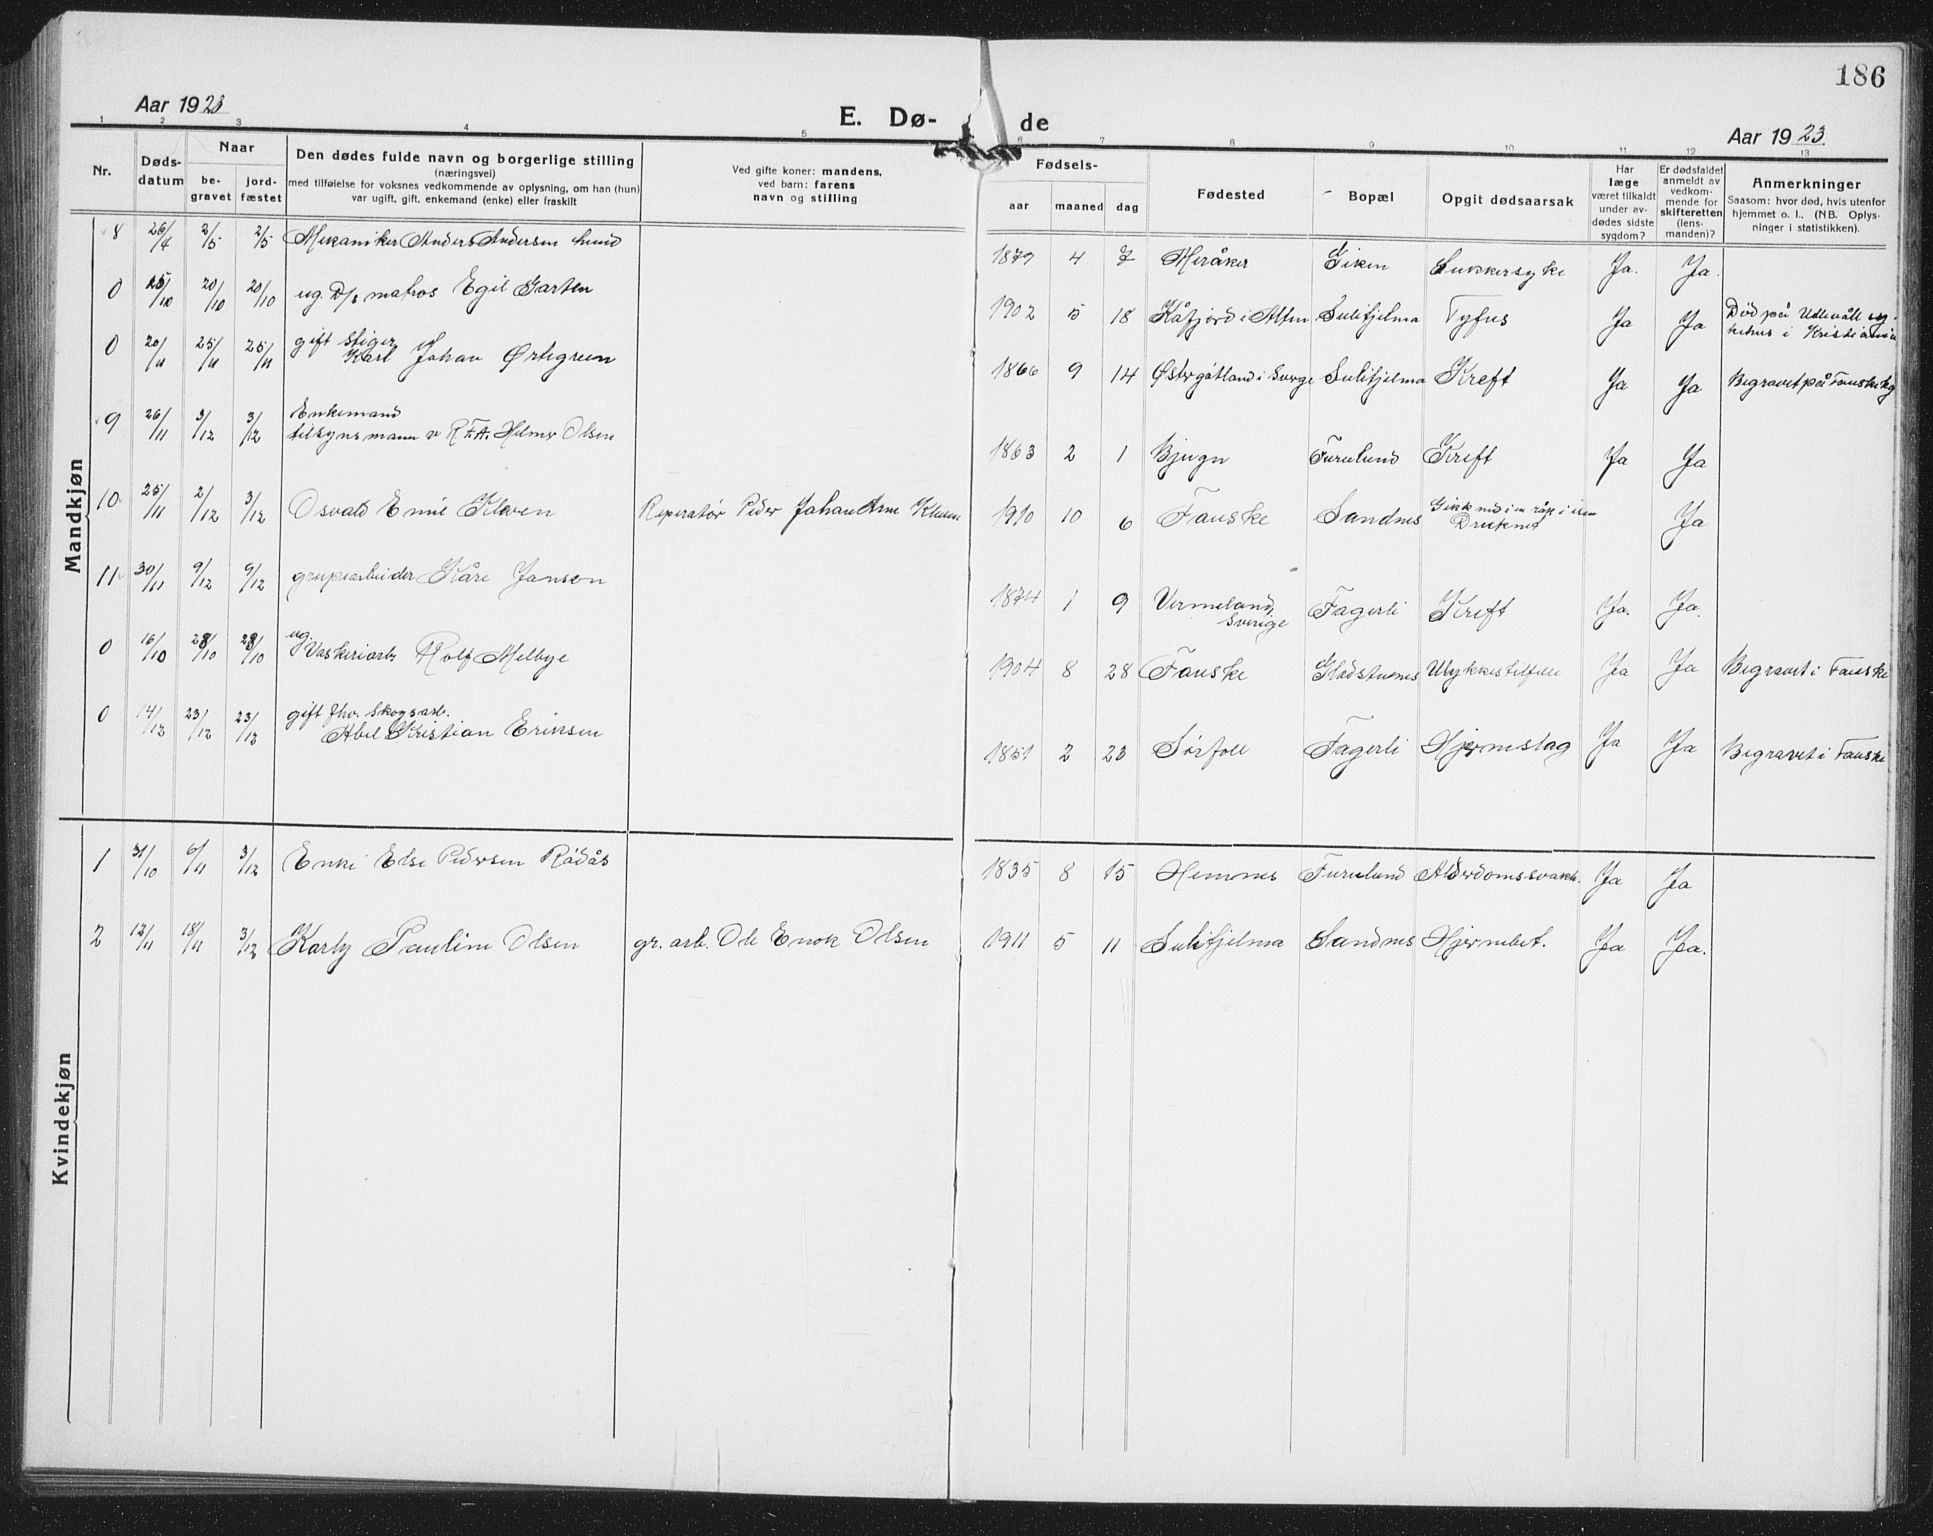 186
Aar 1923
E. Dø-
de
Aar 1923
1 2 3 4 5 6 7 8 9 10 11 12 13
Nr.
Døds-
datum
Naar
be-
gravet
jord-
fæstet
Den dødes fulde navn og borgerlige stilling
(næringsvei)
med tilføielse for voksnes vedkommende av oplysning, om han (hun)
var ugift, gift, enkemand (enke) eller fraskilt
Ved gifte koner: mandens,
ved barn: farens
navn og stilling
Fødsels-
aar maaned dag
Fødested
Bopæl
Opgit dødsaarsak
Har
læge
været tilkaldt
under av-
dødes sidste
sygdom?
Er dødsfaldet
anmeldt av
vedkom-
mende for
skifteretten
(lens-
manden)?
Anmerkninger
Saasom: hvor død, hvis utenfor
hjemmet o. l., (NB. Oplys-
ninger i statistikken).
Mandkjøn
8 26/4 2/5 2/5 Mekaniker Anders Andersen 1879 4 7 Meråker Giken Sukkersyke Ja. Ja.
0 15/10 20/10 20/10 ug. D/s matros Egil Garten 1902 5 18 Kåfjord i Alten Sulitjelma Tyfus Ja Ja Død på Ullevåll sy-
kehus i Kristiania
0 20/11 25/11 25/11 gift stiger
Karl Johan Örtegreen 1866 9 14 Östergötland i Sverge Sulitjelma Kreft Ja Ja Begravet på Fauske kg
9 26/11 3/12 3/12 Enkemand
tilsynsmann v R.F.A. Helmer Olsen 1863 2 1 Bjugn Furulund Kreft Ja Ja
10 25/11 2/12 3/12 Osvald Emil Kleven Reperatør Peder Johan Arne Kleven 1910 10 6 Fauske Sandnes Gikk ned i en råk i isen
Druknet Ja
11 30/11 9/12 9/12 grupearbeider Kåre Janson 1874 1 9 Vermeland,
Sverige Fagerli Kreft Ja. Ja.
0 16/10 28/10 28/10 ug.
Vaskeriarb Rolf Melbye 1904 8 28 Fauske Gladstunes Ulykkestilfelle Ja Ja Begravet i Fauske
0 14/12 23/12 23/12 gift fhv. skogsarb.
Abel Kristian Eriksen 1851 2 23 Sørfold Fagerli Hjerneslag Ja Ja Begravet i Fauske
Kvindekjøn
1 31/10 6/11 3/12 Enke Else Pedersen Rödås 1835 8 15 Hemnes Furulund Alderdomssvakh. Ja Ja
2 12/11 18/11 3/12 Karly Pauline Olsen gr. arb. Ole Enok Olsen 1911 5 11 Sulitjelma Sandnes Hjernebet. Ja Ja.